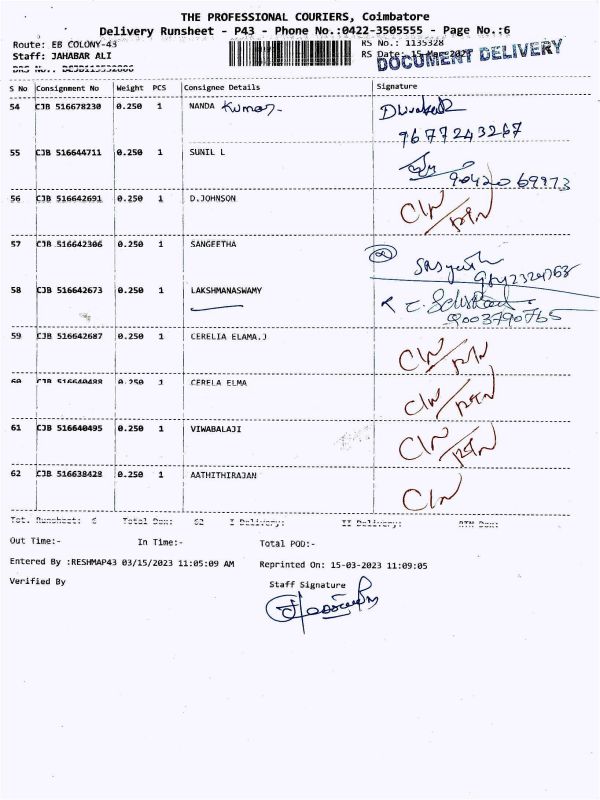 THE PROFESSIONAL COURIERS, Coimbatore
Delivery Runsheet - P43 - Phone No.:0422-3505555 - Page No.:6
Route: EB COLONY-43
RS No.: 1135328
Staff: JAHABAR ALI
RS Date: 15-Mar-2023
DOCUMENT DELIVERY
S No Consignment No Weight PCS Consignee Details Signature
54 CJB 516678230 0.250 1 NANDA Kumar
9677243267
55 CJB 516644711 0.250 1 SUNIL L
9042069973
56 CJB 516642691 0.250 1 D.JOHNSON
57 CJB 516642306 0.250 1 SANGEETHA
58 CJB 516642673 0.250 1 LAKSHMANASWAMY
9003790765
59 CJB 516642687 0.250 1 CERELIA ELAMA.J
60 CJB 516640488 0.250 1 CERELA ELMA
61 CJB 516640495 0.250 1 VIWABALAJI
62 CJB 516638428 0.250 1 AATHITHIRAJAN
Tot. Runsheet: 6 Total Don: 62 I Delivery: II Delivery: RTN Don:
Out Time:- In Time:- Total POD:-
Entered By :RESHMAP43 03/15/2023 11:05:09 AM Reprinted On: 15-03-2023 11:09:05
Verified By Staff Signature